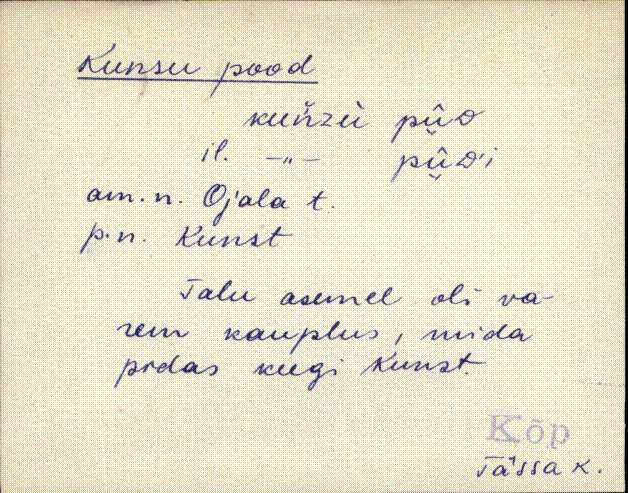 Kunsu pood
kuňzù pûᴅ
il. —„— pûᴅ'i
am. n. Ojala t.
p. n. Kunst
Talu asemel oli va-
rem kauplus, mida
pidas keegi Kunst.
Kõp
Tässa k.